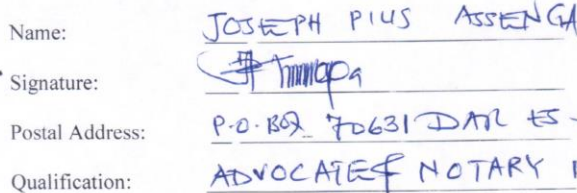 Name: JOSEPH PIUS ASSENGA
Signature:
Postal Address: P.O. BOX 70631 DAR ES-
Qualification: ADVOCATE & NOTARY